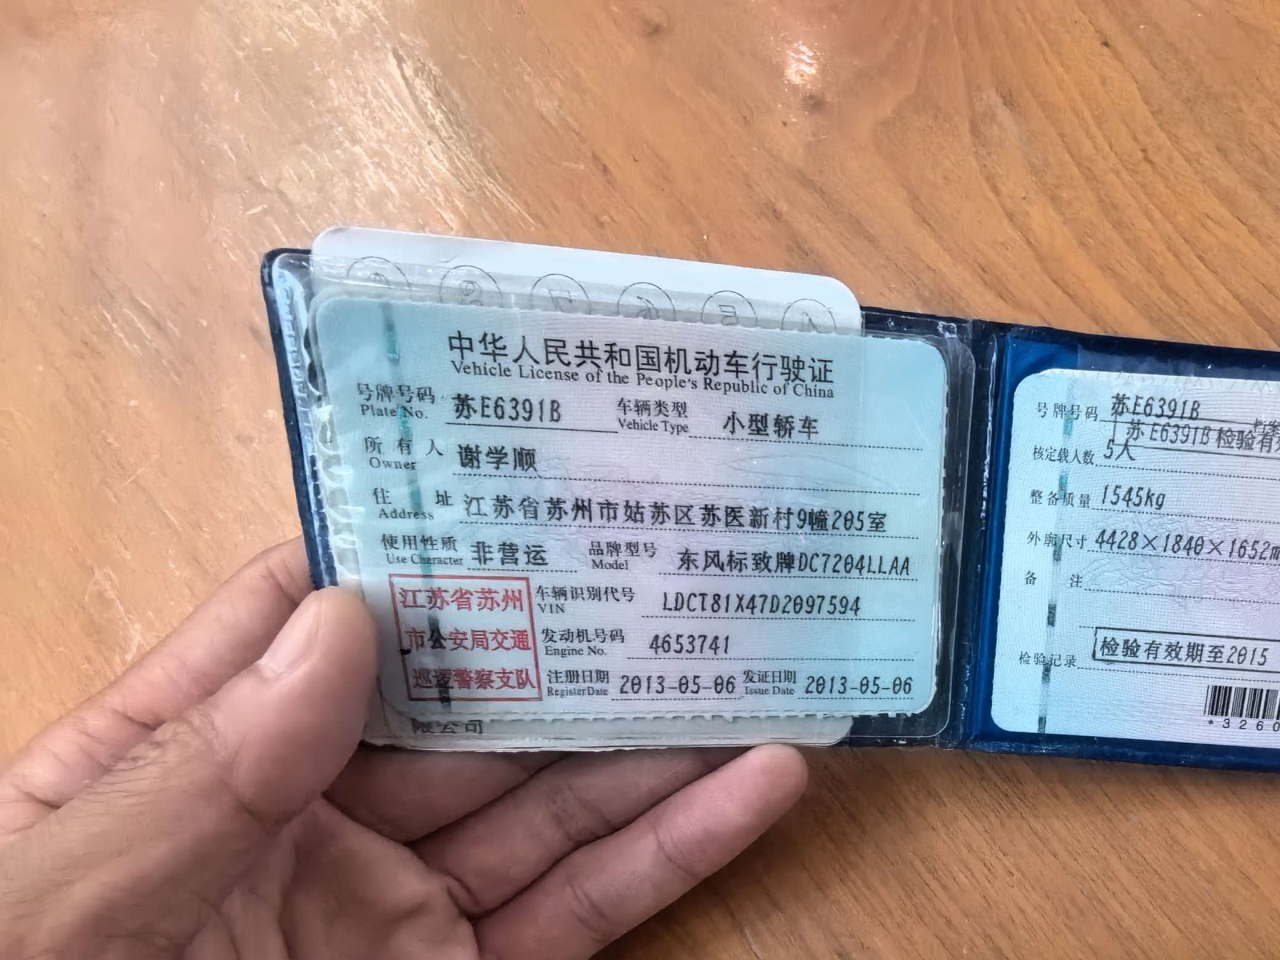 中华人民共和国机动车行驶证
Vehicle License of the People's Republic of China
号牌号码 苏E6391B 车辆类型 小型轿车
Plate No. Vehicle Type
所有人 谢学顺
Owner
住址 江苏省苏州市姑苏区苏医新村9幢205室
Address
使用性质 非营运 品牌型号 东风标致牌DC7204LLAA
Use Character Model
江苏省苏州
市公安局交通
巡逻警察支队
车辆识别代号 LDCT81X47D2097594
VIN
发动机号码 4653741
Engine No.
注册日期 2013-05-06 发证日期 2013-05-06
Register Date Issue Date
限公司
号牌号码 苏E6391B
苏E6391B 检验有
核定载人数 5人
整备质量 1545kg
外廓尺寸 4428×1840×1652
备注
检验记录 检验有效期至2015
*3260